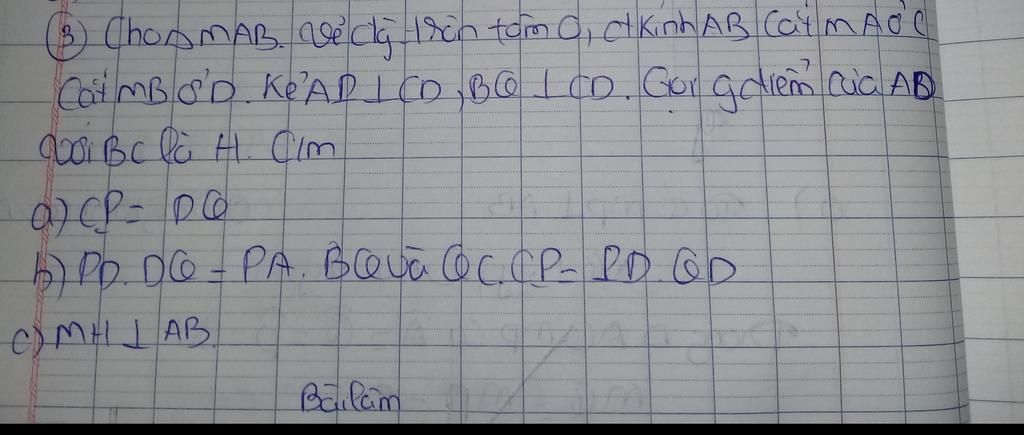 ③ Cho Δ MAB. Vẽ đg tròn tâm O, đkính AB cắt MA ở C
Cắt MB ở D. Kẻ AP ⊥ CD, BQ ⊥ CD. Gọi gđiểm của AD
với BC là H. C/m
a) CP = DQ
b) PD. DQ = PA. BQ và QC. CP = PD. QD
c) MH ⊥ AB.
Bài làm